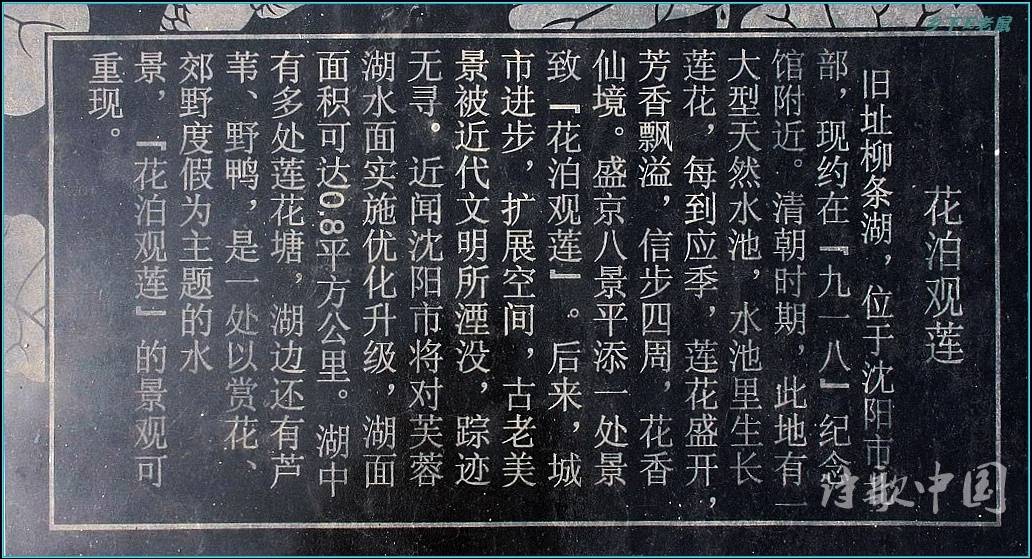 花泊观莲
旧址柳条湖，位于沈阳市
部，现约在『九一八』纪念
馆附近。清朝时期，此地有一
大型天然水池，水池里生长
莲花，每到应季，莲花盛开，
芳香飘溢，信步四周，花香
仙境。盛京八景平添一处景
致『花泊观莲』。后来，城
市进步，扩展空间，古老美
景被近代文明所湮没，踪迹
无寻。近闻沈阳市将对芙蓉
湖水面实施优化升级，湖面
面积可达0.8平方公里。湖中
有多处莲花塘，湖边还有芦
苇、野鸭，是一处以赏花、
郊野度假为主题的水
景，『花泊观莲』的景观可
重现。
诗歌中国